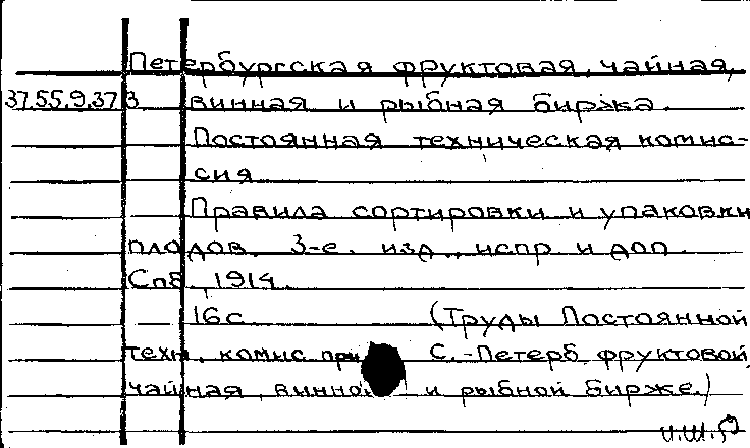 Петербургская фруктовая, чайная,
37.55.9.373 винная и рыбная биржа.
Постоянная техническая комис-
сия
Правила сортировки и упаковки
плодов. 3-е. изд., испр и доп.
Спб, 1914.
16с. (Труды Постоянной
техн. комис при С.-Петерб. фруктовой,
чайная, винно. и рыбной бирже.)